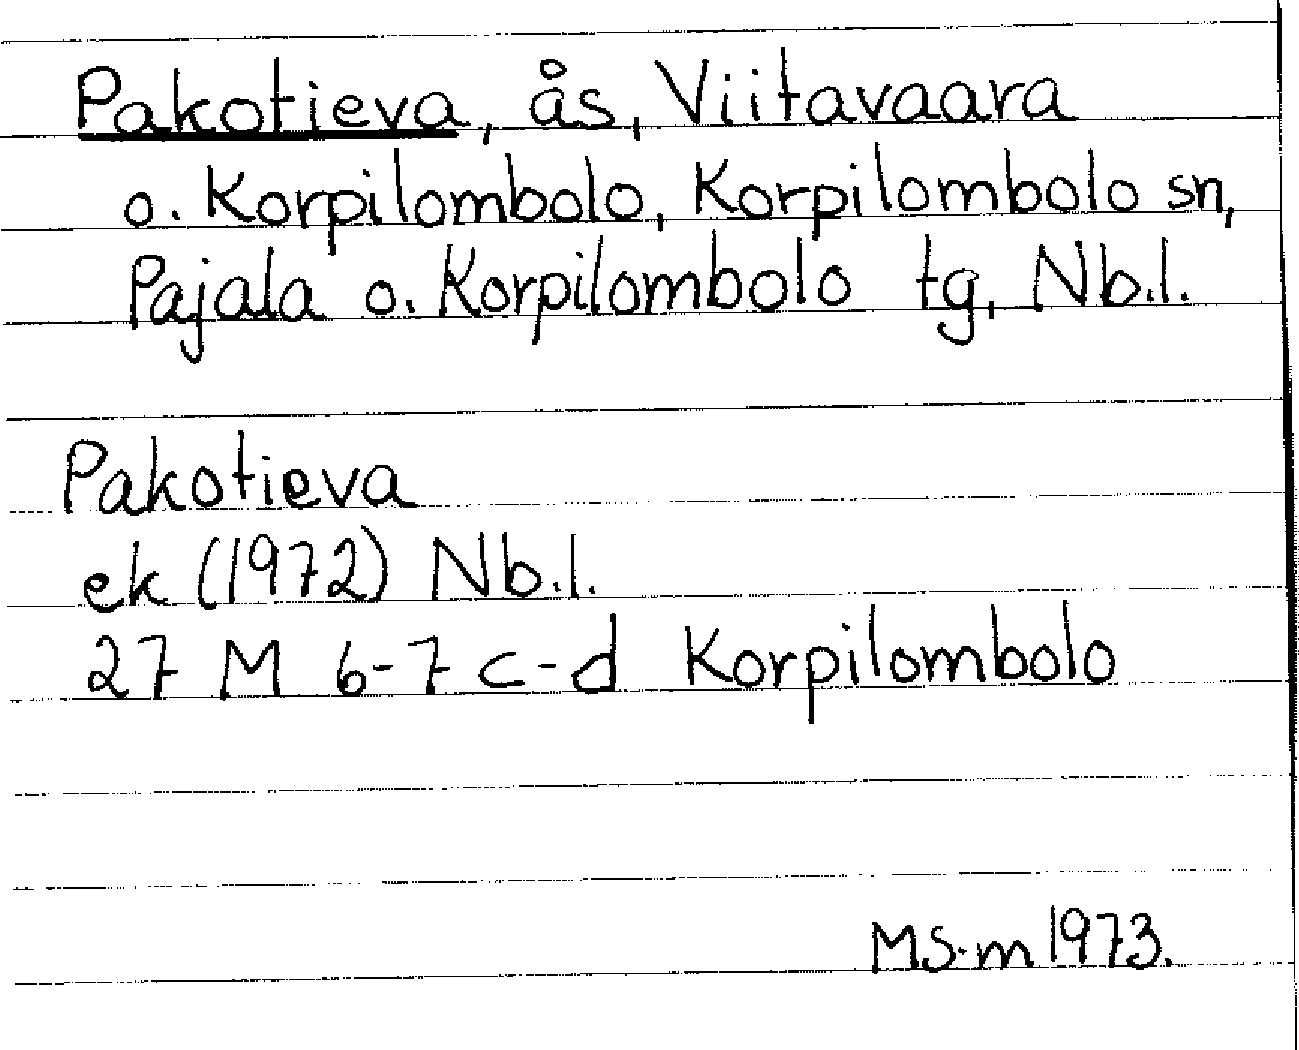 Pakotieva, ås, Viitavaara
o. Korpilombolo, Korpilombolo sn,
Pajala o. Korpilombolo tg, Nb.l.
Pakotieva
ek (1972) Nb.l.
27 M 6-7 c-d Korpilombolo
MS-m 1973.